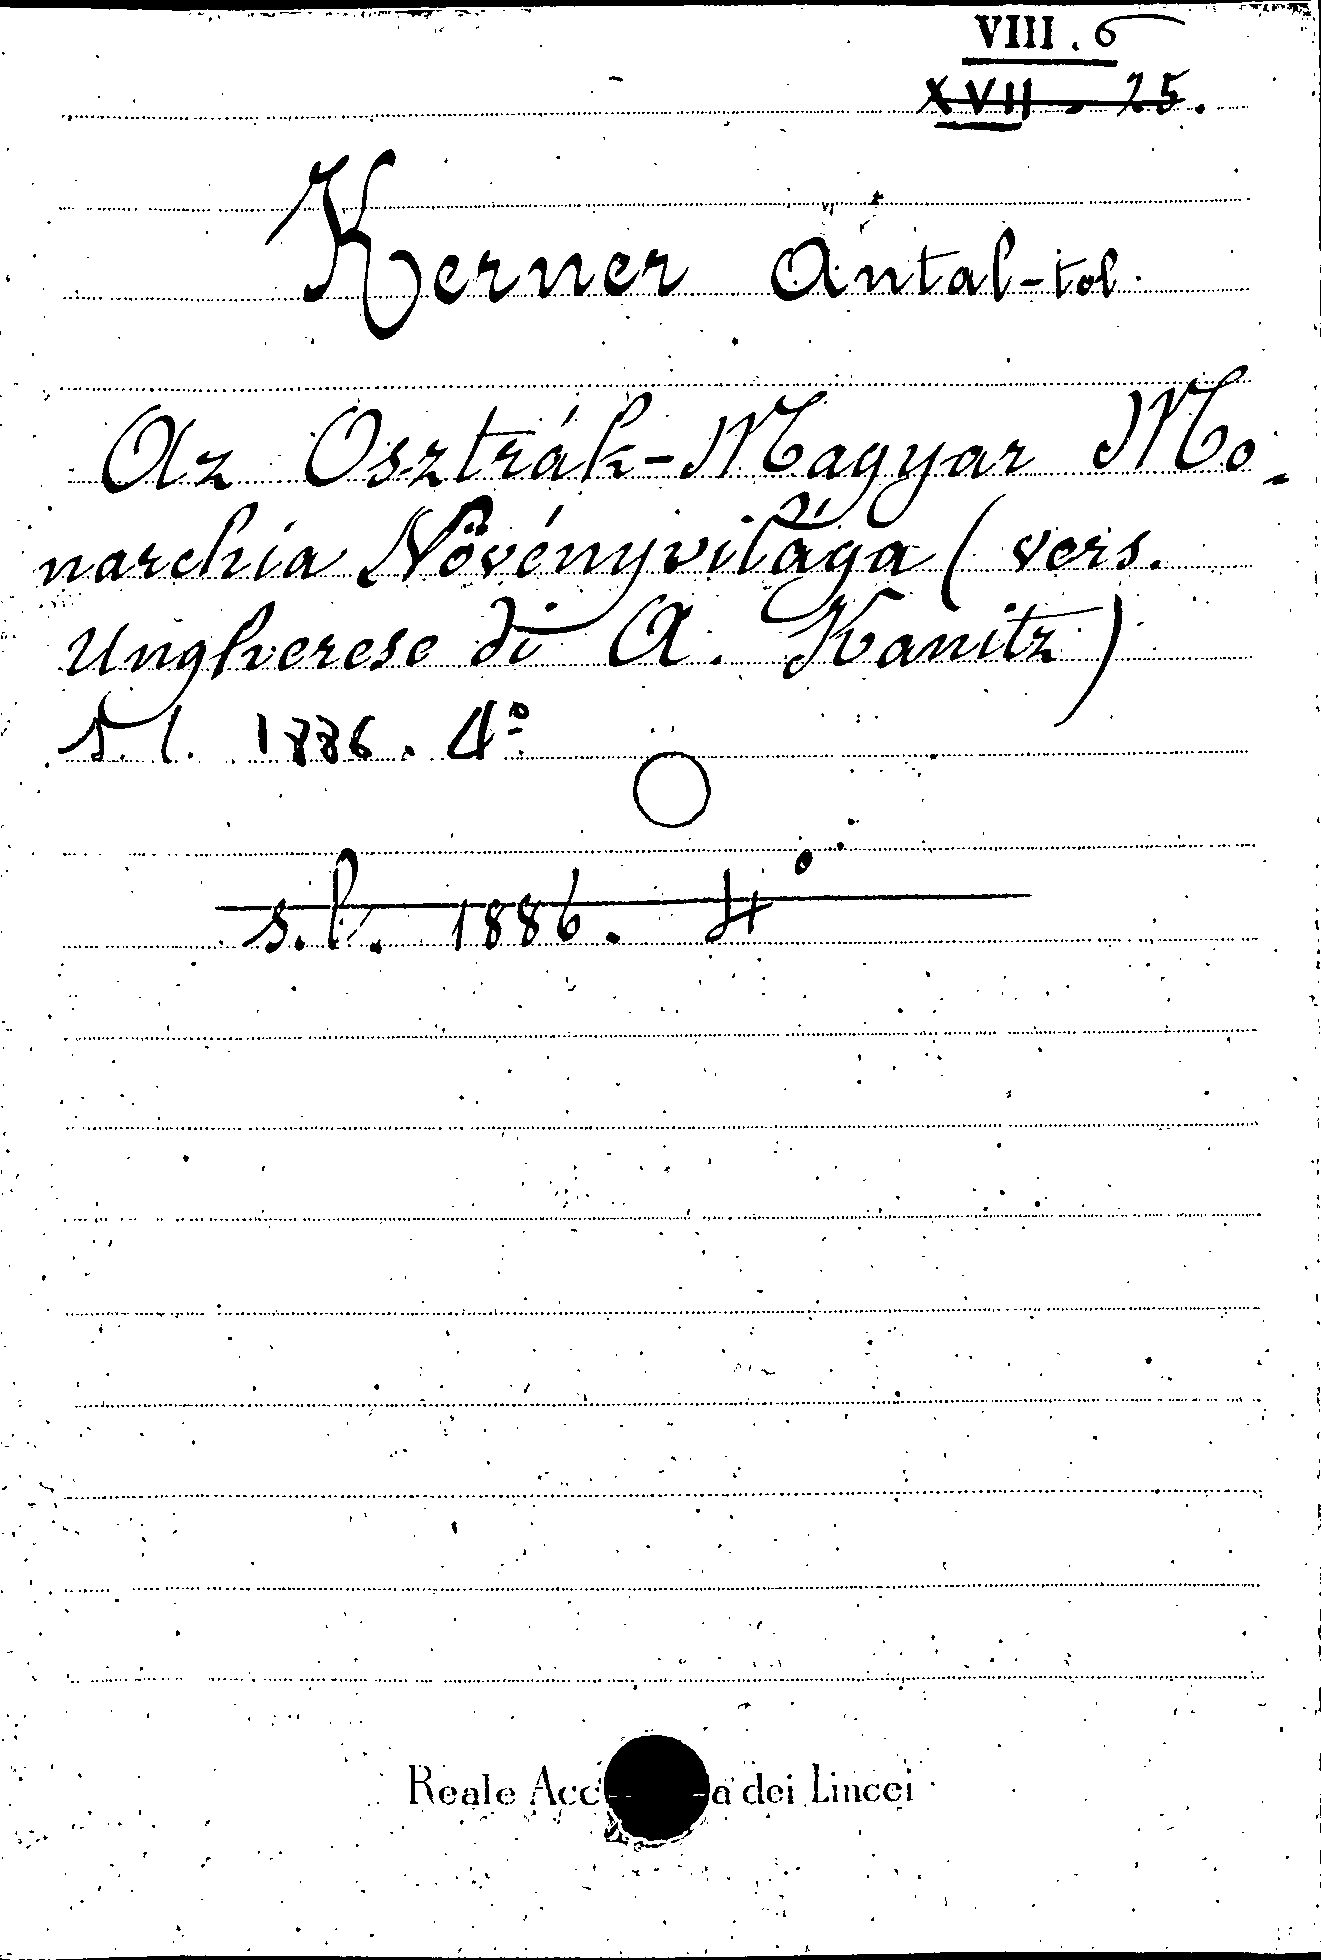 VIII. 6
XVII. 25.
Kerner Antal-tol.
Az Osztrák-Magyar Mo-
narchia Növényvilága (vers.
Ungherese di A. Kanitz)
s. l. 1886. 4°
s. l. 1886. 4°
Reale Acc a dei Lincei